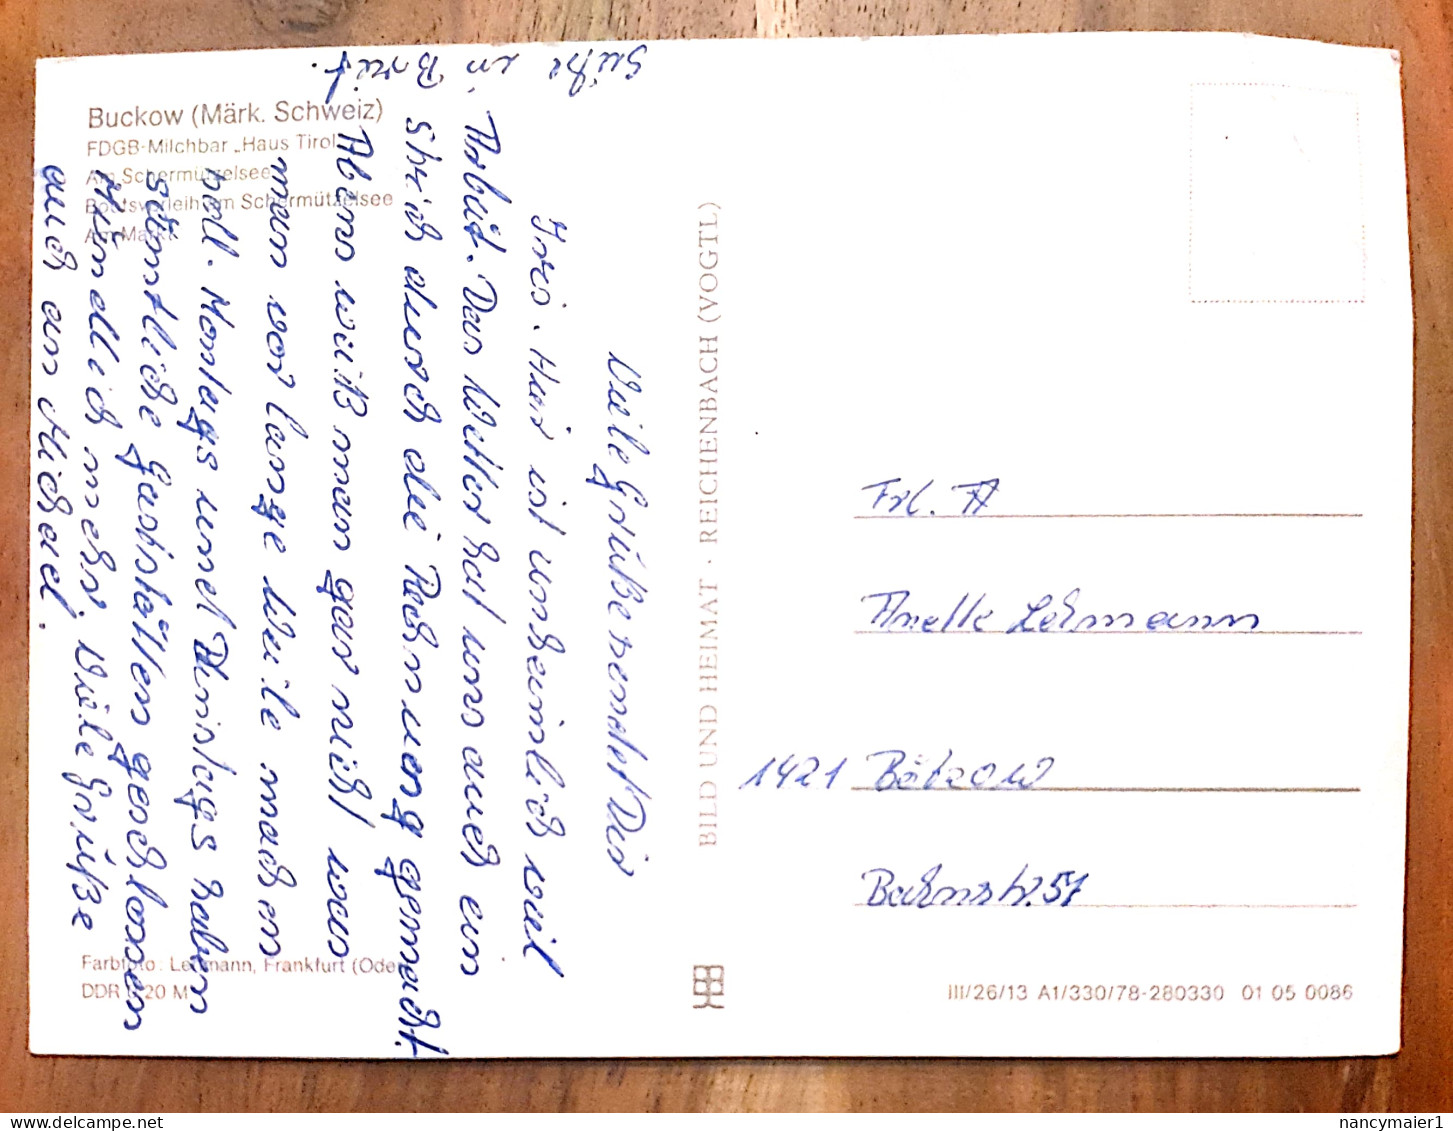 Buckow (Märk. Schweiz)
FDGB-Milchbar „Haus Tirol“
Am Schermützelsee
Bootsverleih am Schermützelsee
Am Markt
Viele Grüße sendet Dir
Iris. Hier ist unheimlich viel
Arbeit. Das Wetter hat uns auch ein
Strich durch die Rechnung gemacht.
Abens weiß man gar nicht was
man vor lange Weile machen
soll. Montags und Dinstags haben
sämtliche Gaststätten geschlossen
Mündlich mehr. Viele Grüße
auch an Michael.
Grüße in Brief.
BILD UND HEIMAT · REICHENBACH (VOGTL)
Frl. A
Anette Lehmann
1421 Bötzow
Bahnstr. 57
Farbfoto: Lehmann, Frankfurt (Oder)
DDR 0,20 M
III/26/13 A1/330/78-280330 01 05 0086
nancymaier1